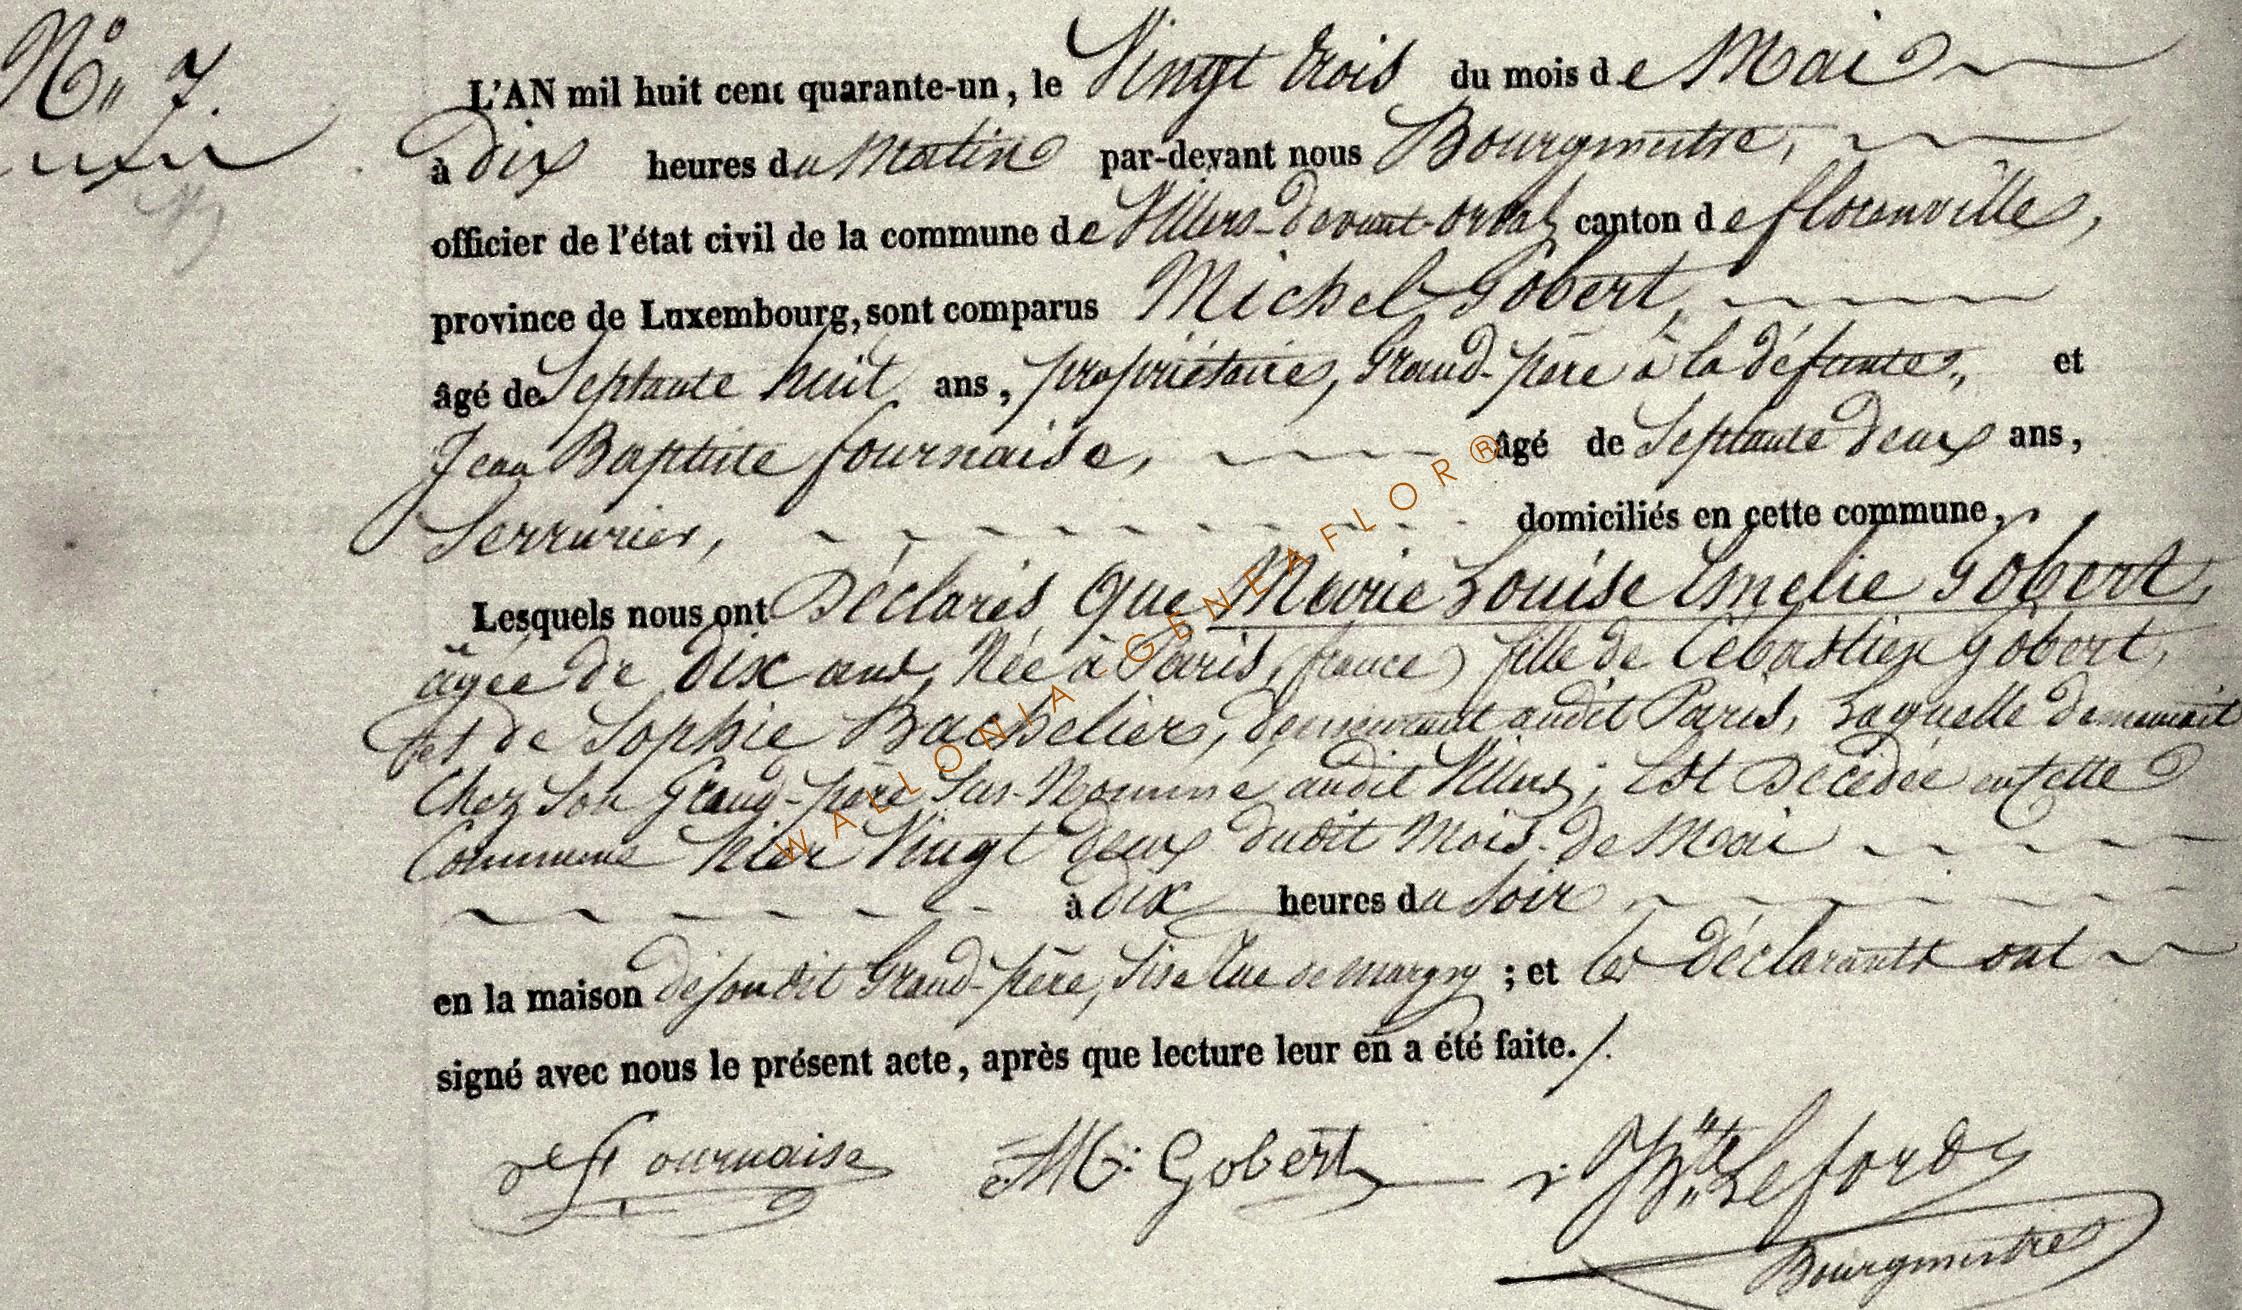 N° 7.
L'AN mil huit cent quarante-un, le Vingt trois du mois de Mai
à dix heures du Matin par-devant nous Bourgmestre,
officier de l'état civil de la commune de Villers-devant-orval canton de florenville,
province de Luxembourg, sont comparus Michel Gobert,
âgé de Septante huit ans, propriétaire, Grand-père à la défunte, et
Jean Baptiste fournaise, âgé de Septante deux ans,
Serrurier, domiciliés en cette commune,
Lesquels nous ont Déclarés que Marie Louise Emelie Gobert,
âgée de dix ans, Née à Paris, (france) fille de Cébastien Gobert,
et de Sophie Bachelier, demeurant audit Paris, Laquelle demeurait
Chez Son Grand-père Sus-Nommé audit Villers; Est Décédée en Cette
Commune hier Vingt deux dudit Mois de Mai
à dix heures du Soir
en la maison de son dit Grand-père, Sise Rue de margny ; et les Déclarants ont
signé avec nous le présent acte, après que lecture leur en a été faite./.
fournaise M: Gobert j: Bte Lefordy
Bourgmestre
WALLONIA GENEAFLOR®